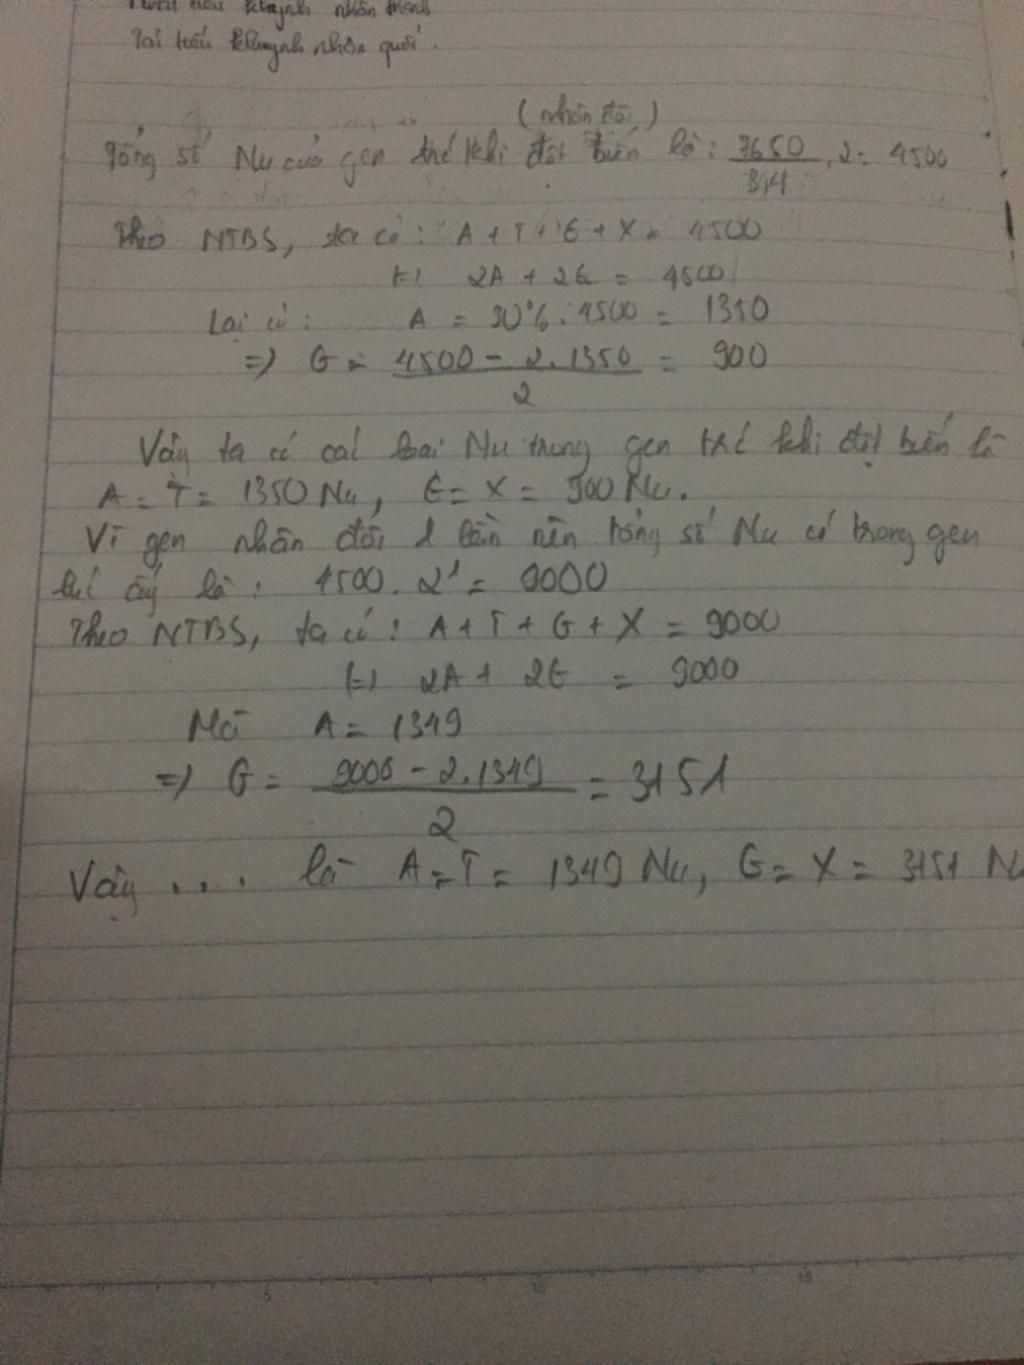 khuynh nhân thành
Tai biến khuynh nhân quả.
(nhân đôi)
Tổng số Nu của gen trước khi đột biến là: 7650/3,4 . 2 = 4500
Theo NTBS, ta có: A + T + G + X = 4500
(=) 2A + 2G = 4500
Lại có: A = 30% . 4500 = 1350
=> G = 4500 - 2.1350 / 2 = 900
Vậy ta có các loại Nu trong gen trước khi đột biến là
A = T = 1350 Nu, G = X = 900 Nu.
Vì gen nhân đôi 1 lần nên tổng số Nu có trong gen
lúc ấy là: 4500 . 2¹ = 9000
Theo NTBS, ta có: A + T + G + X = 9000
(=) 2A + 2G = 9000
Mà A = 1349
=> G = 9000 - 2.1349 / 2 = 3151
Vậy .... là A = T = 1349 Nu, G = X = 3151 Nu
5 10 15